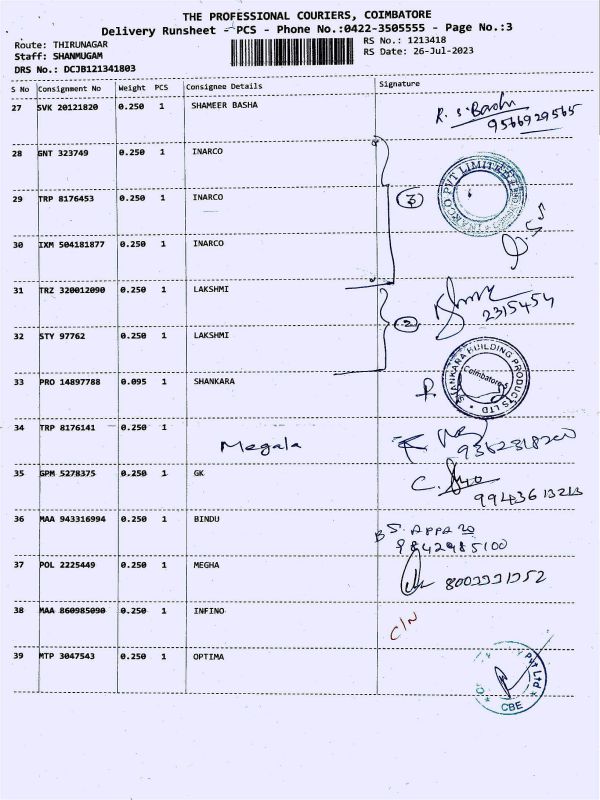 THE PROFESSIONAL COURIERS, COIMBATORE
Delivery Runsheet - PCS - Phone No.:0422-3505555 - Page No.:3
Route: THIRUNAGAR RS No.: 1213418
Staff: SHANMUGAM RS Date: 26-Jul-2023
DRS No.: DCJB121341803
S No Consignment No Weight PCS Consignee Details Signature
27 SVK 20121820 0.250 1 SHAMEER BASHA
9566929565
28 GNT 323749 0.250 1 INARCO
29 TRP 8176453 0.250 1 INARCO 3 INARCO PVT LIMITED
30 IXM 504181877 0.250 1 INARCO
31 TRZ 320012090 0.250 1 LAKSHMI
2315454
32 STY 97762 0.250 1 LAKSHMI 2
33 PRO 14897788 0.095 1 SHANKARA SHANKARA BUILDING PRODUCTS LTD
34 TRP 8176141 0.250 1 Megala
35 GPM 5278375 0.250 1 GK
36 MAA 943316994 0.250 1 BINDU
9842985100
37 POL 2225449 0.250 1 MEGHA
38 MAA 860985090 0.250 1 INFINO C/N
39 MTP 3047543 0.250 1 OPTIMA Pvt Ltd CBE